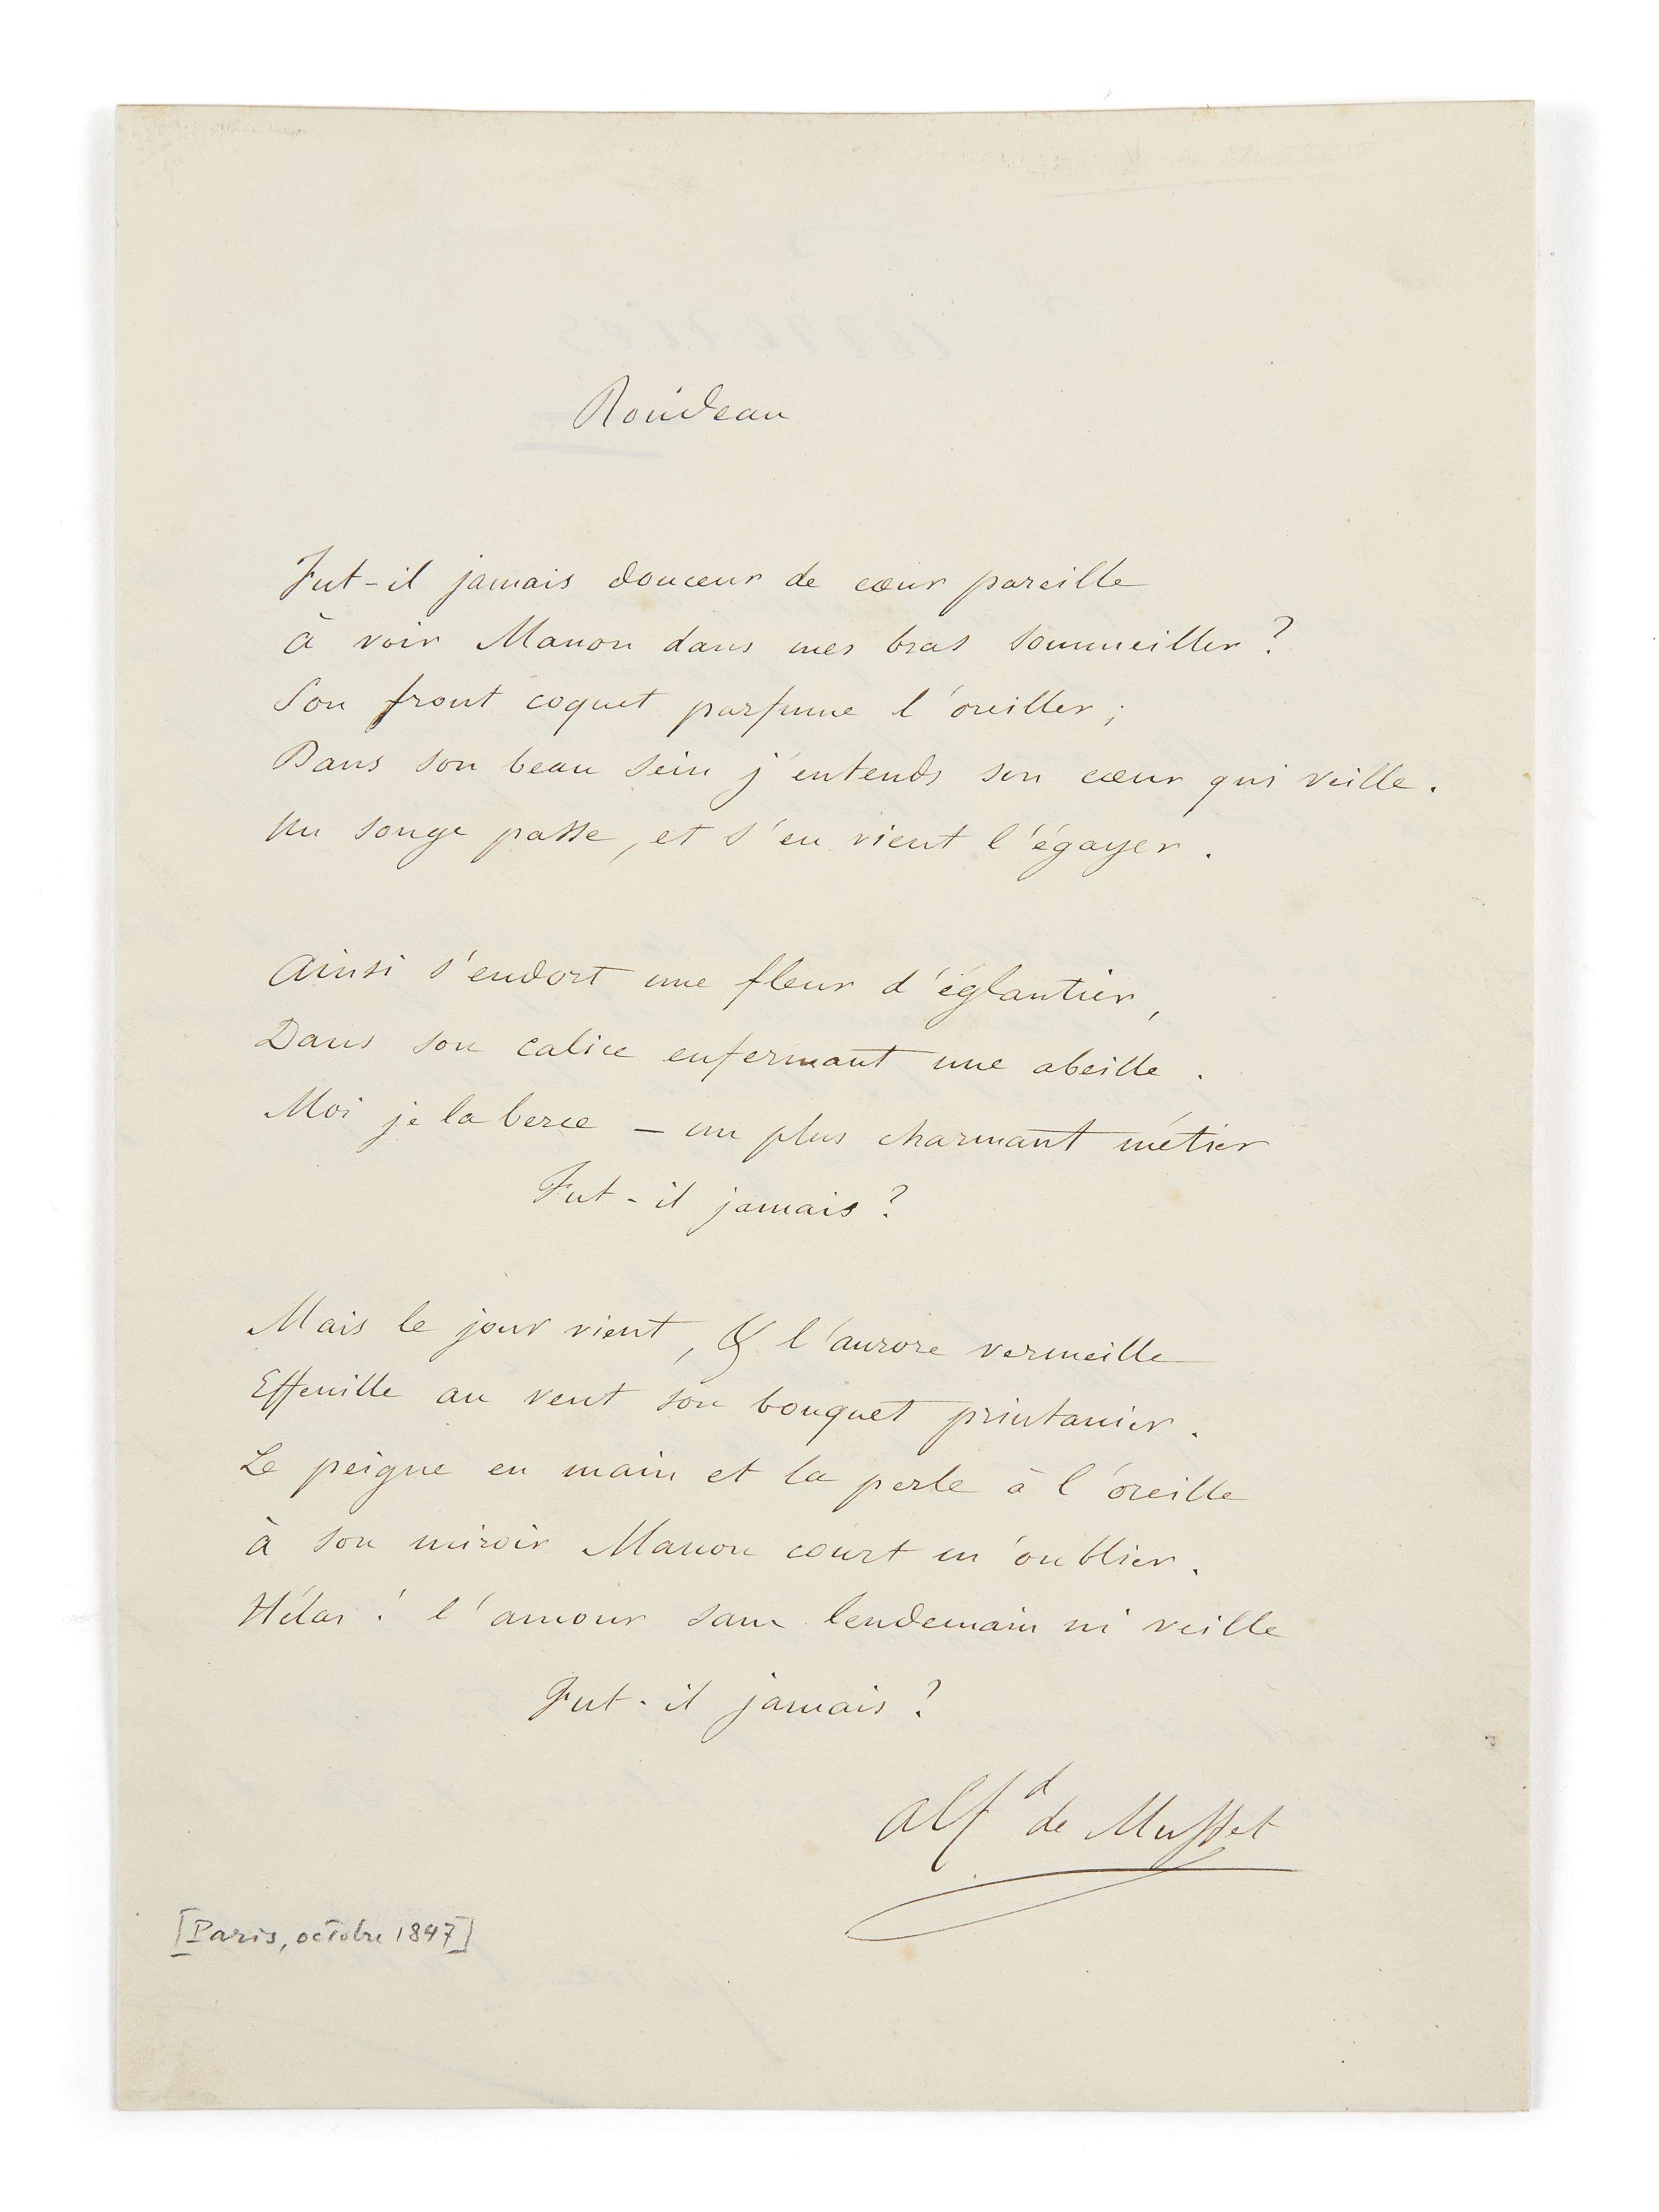 Rondeau
Fut-il jamais douceur de cœur pareille
à voir Manon dans mes bras sommeiller ?
Son front coquet parfume l'oreiller ;
Dans son beau sein j'entends son cœur qui veille.
Un songe passe, et s'en vient l'égayer.
Ainsi s'endort une fleur d'églantier,
Dans son calice enfermant une abeille.
Moi je la berce – un plus charmant métier
Fut-il jamais ?
Mais le jour vient, & l'aurore vermeille
Effeuille au vent son bouquet printanier.
Le peigne en main et la perle à l'oreille
à son miroir Manon court m'oublier.
Hélas ! l'amour sans lendemain ni veille
Fut-il jamais ?
Alf^d de Musset
[Paris, octobre 1847]